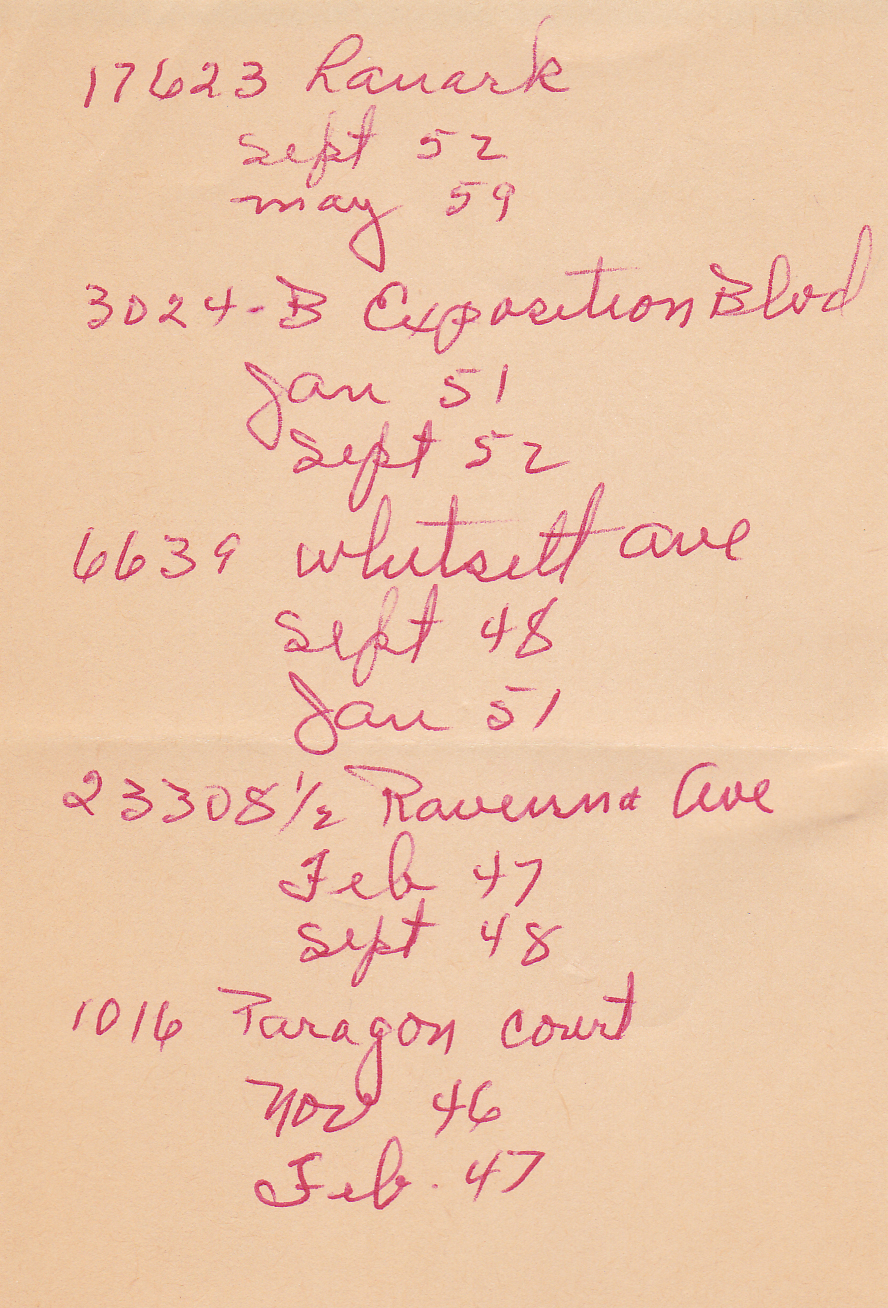 17623 Lanark
Sept 52
May 59
3024-B Exposition Blvd
Jan 51
Sept 52
6639 Whitsett Ave
Sept 48
Jan 51
23308 1/2 Ravenna Ave
Feb 47
Sept 48
1016 Paragon Court
Nov 46
Feb. 47